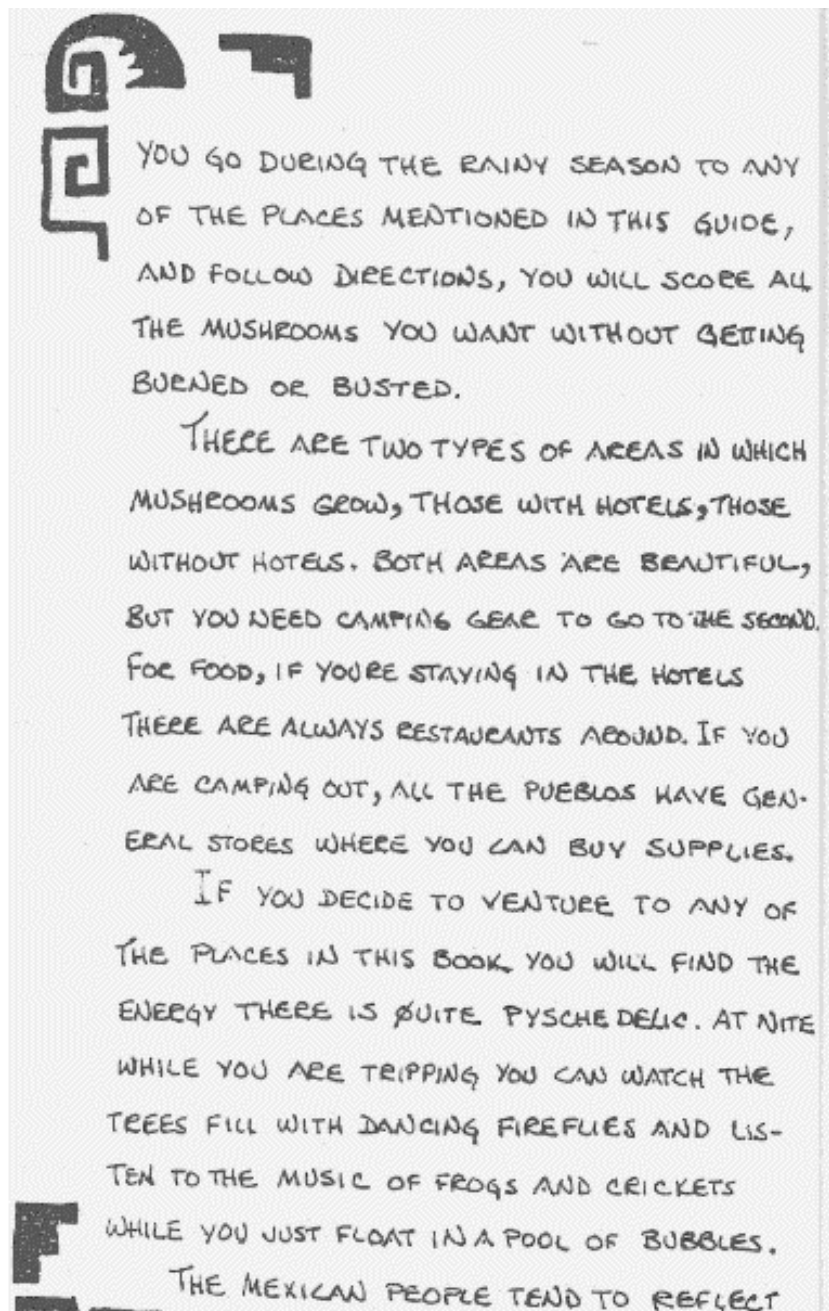 YOU GO DURING THE RAINY SEASON TO ANY
OF THE PLACES MENTIONED IN THIS GUIDE,
AND FOLLOW DIRECTIONS, YOU WILL SCORE ALL
THE MUSHROOMS YOU WANT WITHOUT GETTING
BURNED OR BUSTED.
THERE ARE TWO TYPES OF AREAS IN WHICH
MUSHROOMS GROW, THOSE WITH HOTELS, THOSE
WITHOUT HOTELS. BOTH AREAS ARE BEAUTIFUL,
BUT YOU NEED CAMPING GEAR TO GO TO THE SECOND.
FOR FOOD, IF YOURE STAYING IN THE HOTELS
THERE ARE ALWAYS RESTAURANTS AROUND. IF YOU
ARE CAMPING OUT, ALL THE PUEBLOS HAVE GEN-
ERAL STORES WHERE YOU CAN BUY SUPPLIES.
IF YOU DECIDE TO VENTURE TO ANY OF
THE PLACES IN THIS BOOK YOU WILL FIND THE
ENERGY THERE IS QUITE PYSCHEDELIC. AT NITE
WHILE YOU ARE TRIPPING YOU CAN WATCH THE
TREES FILL WITH DANCING FIREFLIES AND LIS-
TEN TO THE MUSIC OF FROGS AND CRICKETS
WHILE YOU JUST FLOAT IN A POOL OF BUBBLES.
THE MEXICAN PEOPLE TEND TO REFLECT